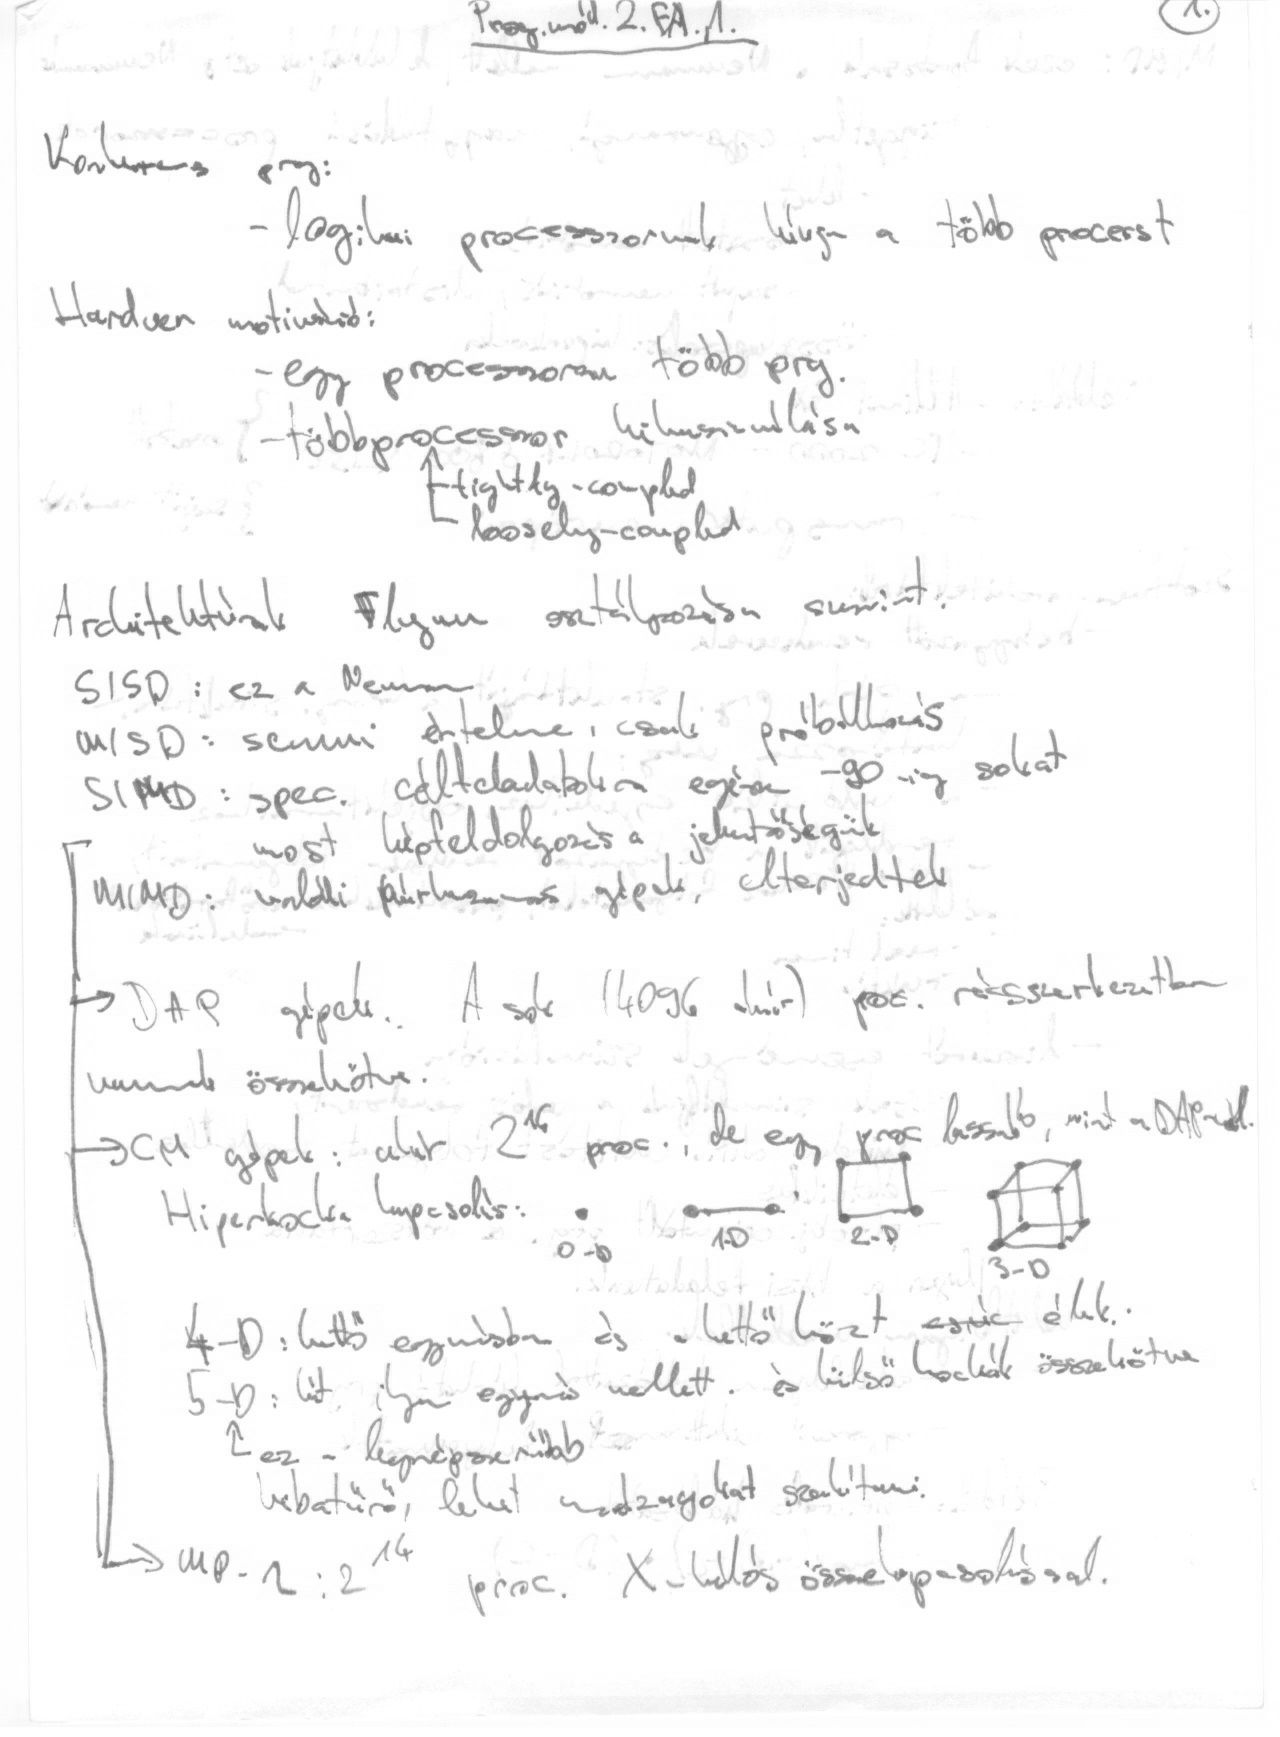 Prog. mód. 2. EA. 1.
1.
Konkurens prg:
- logikai processzornak hívja a több procerst
Hardver motiváció:
- egy processzoron több prg.
- több processzor kihasználása
tightly-coupled
loosely-coupled
Architektúrák Flynn osztályozása szerint.
SISD : ez a Neuman
MISD : semmi értelme, csak próbálkozás
SIMD : spec. célfeladatokra egészen -90 -ig sokat
most képfeldolgozás a jelentőségük
MIMD : valódi párhuzamos gépek, elterjedtek
DAP gépek. A sok (4096 akár) proc. rácsszerkezetben
vannak összekötve.
CM gépek : akár 2^16 proc., de egy proc lassabb, mint a DAP-nál.
Hiperkocka kapcsolás:
0-D 1-D 2-D 3-D
4-D : kettő egymásban és a kettő közt élek.
5-D : két ilyen egymás mellett. és külső kockák összekötve
ez a legnépszerűbb
hibatűrő, lehet madzagokat szakítani.
MP-1 : 2^14 proc. X-hálós összekapcsolással.